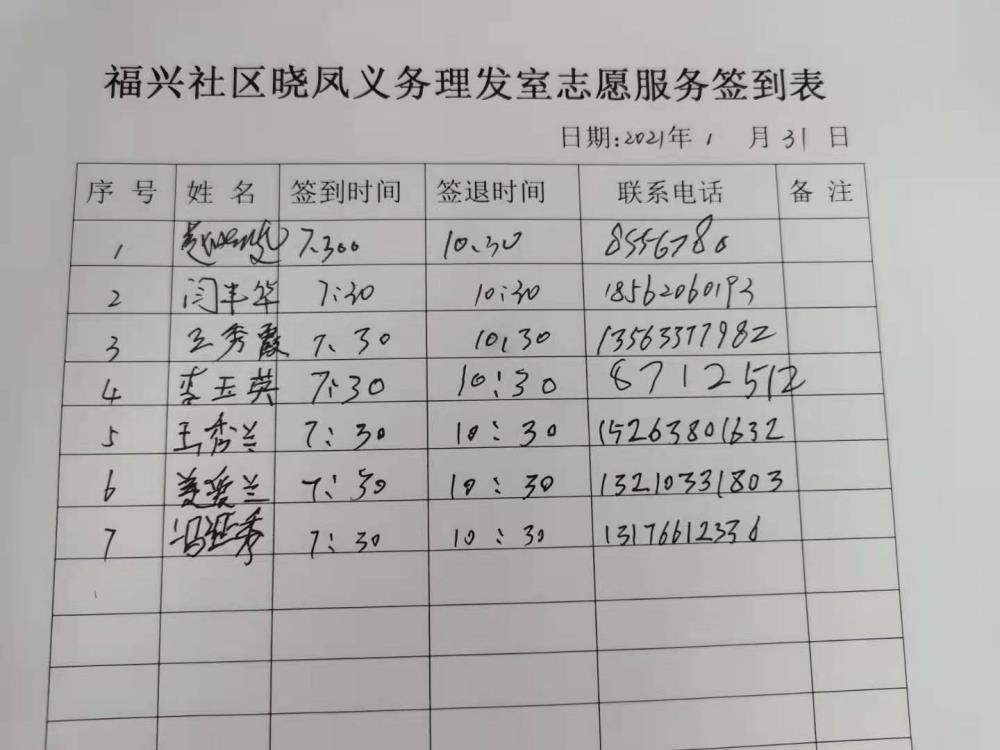 福兴社区晓凤义务理发室志愿服务签到表
日期:2021年 1 月 31 日
序号 姓名 签到时间 签退时间 联系电话 备注
1 7.300 10.30 8556780
2 闫丰华 7:30 10:30 18562060193
3 王秀霞 7.30 10.30 13563377982
4 李玉英 7:30 10:30 8712512
5 王秀兰 7:30 10:30 15263801632
6 姜爱兰 7:30 10:30 13210331803
7 7:30 10:30 13176612336